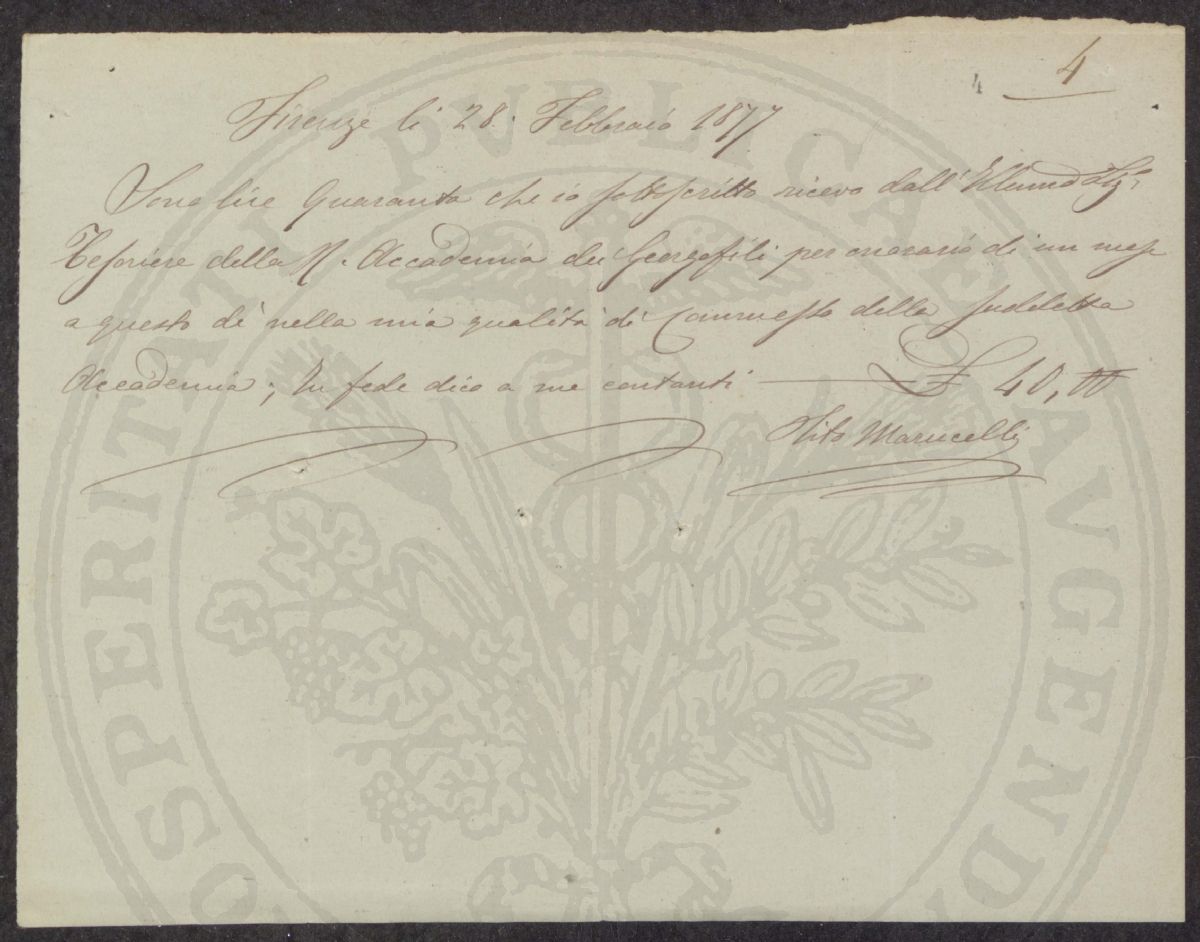 4
4
Firenze li 28. Febbraio 1877
Sono lire Quaranta che io sottoscritto ricevo dall' Illumo Sigr
Tesoriere della R. Accademia dei Georgofili per onorario di un mese
a questo dì nella mia qualità di Commesso della suddetta
Accademia; In fede dico a me contanti — £ 40,00
Marucelli
PROSPERITATI PVBLICAE AVGENDAE